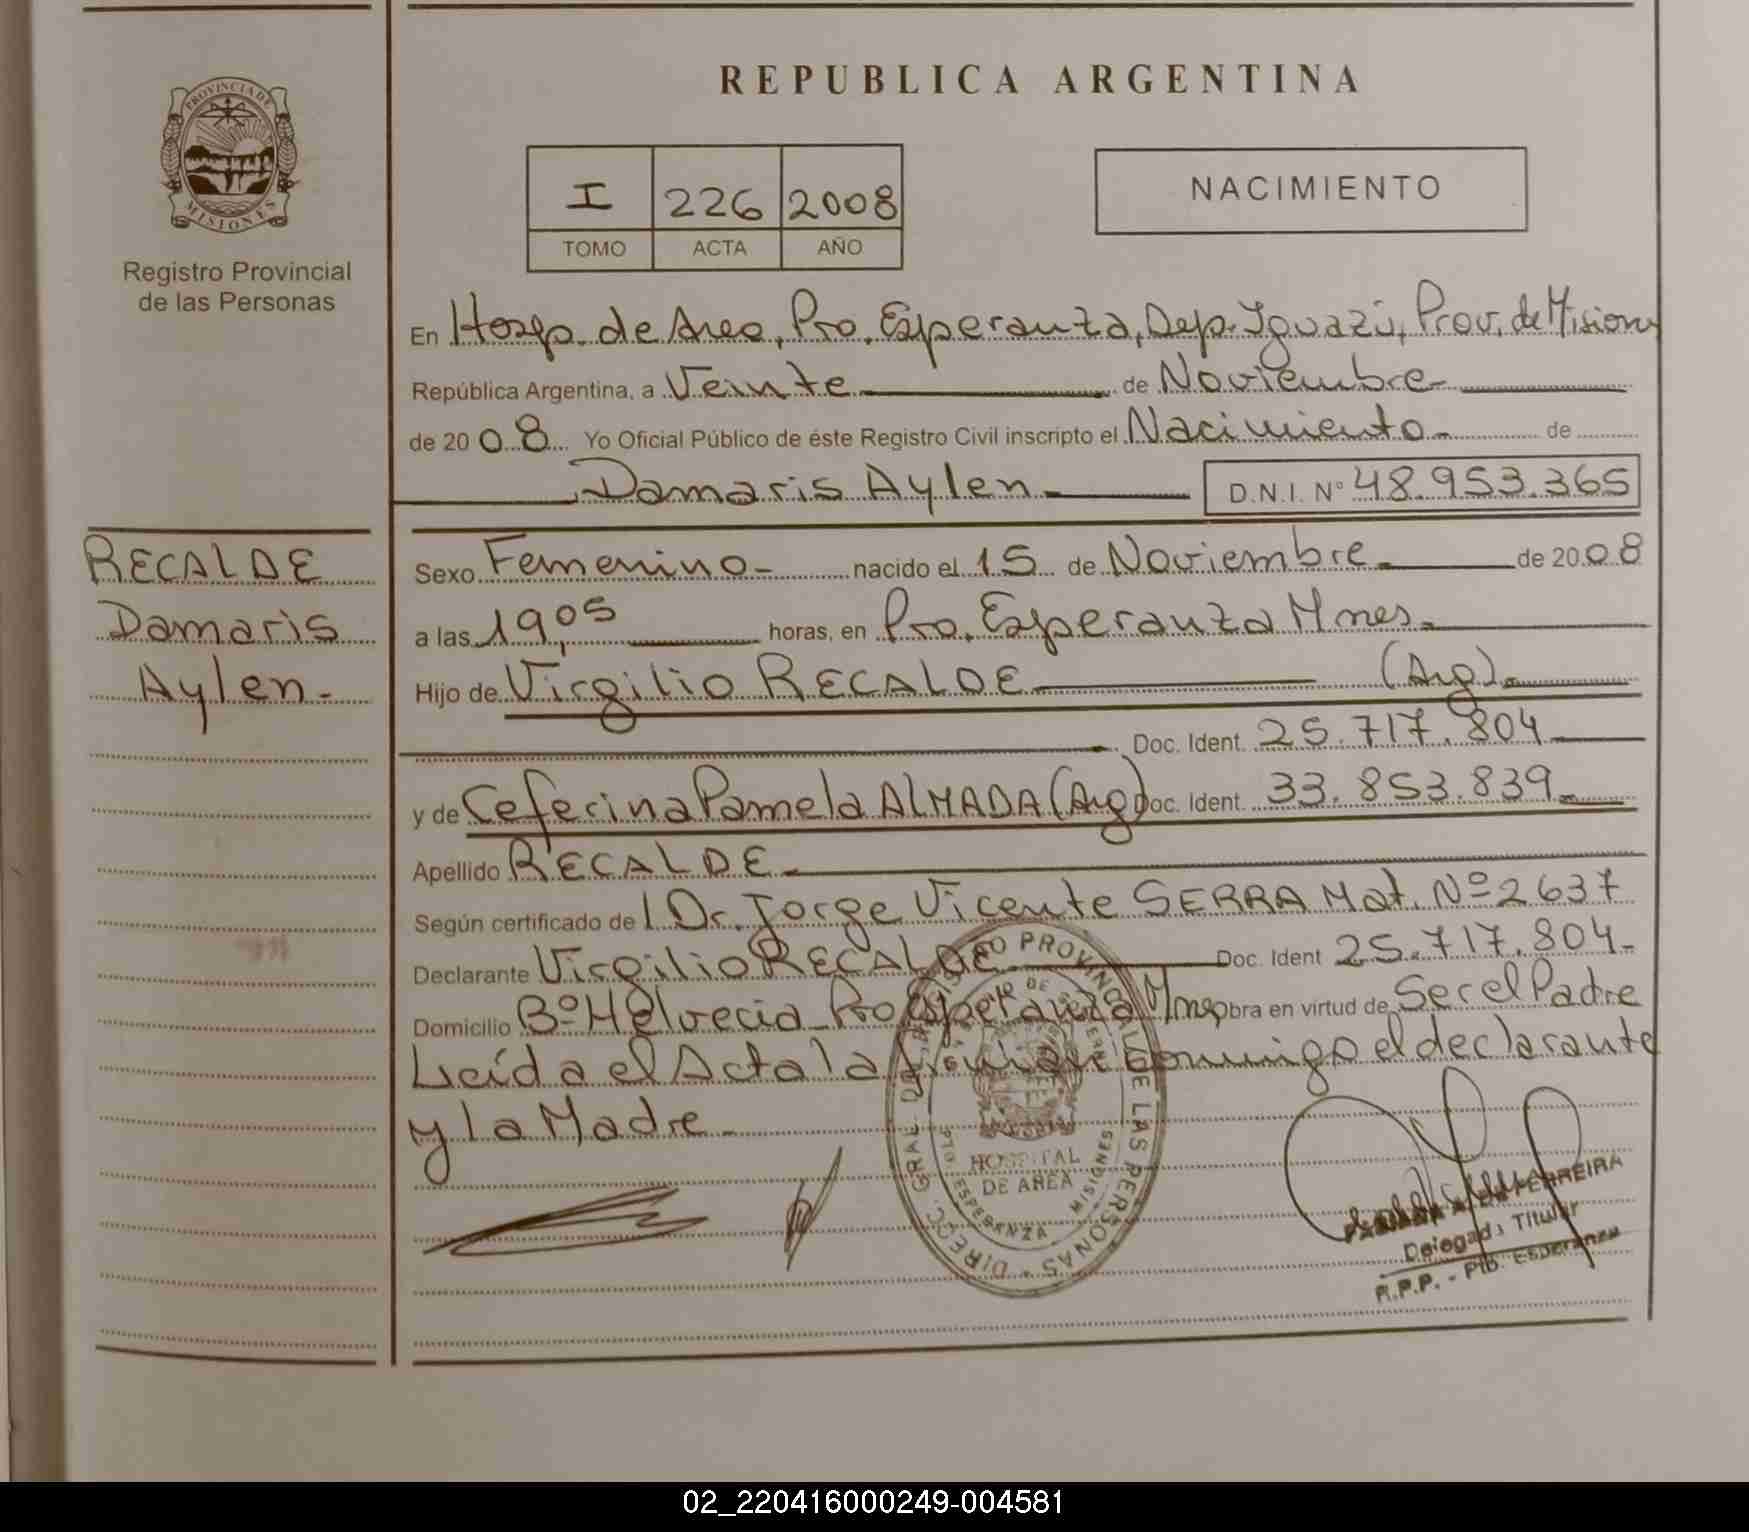 REPUBLICA ARGENTINA
PROVINCIA DE
MISIONES
Registro Provincial
de las Personas
I 226 2008
TOMO ACTA AÑO
NACIMIENTO
En Hosp. de Area, Pto. Esperanza, Dep. Iguazú, Prov. de Misiones
República Argentina, a Veinte de Noviembre
de 2008 Yo Oficial Público de éste Registro Civil inscripto el Nacimiento de
Damaris Aylen D.N.I. Nº 48.953.365
RECALDE
Damaris
Aylen.
Sexo Femenino nacido el 15 de Noviembre de 2008
a las 19,05 horas, en Pto. Esperanza Mnes.
Hijo de Virgilio RECALDE (Arg).
Doc. Ident. 25.717.804
y de Ceferina Pamela ALMADA (Arg) Doc. Ident. 33.853.839
Apellido RECALDE
Según certificado de l Dr. Jorge Vicente SERRA Mat. Nº 2637
Declarante Virgilio RECALDE Doc. Ident 25.717.804
Domicilio Bº Helvecia Pto Esperanza Mnes Obra en virtud de Ser el Padre
Leída el Acta la firman conmigo el declarante
y la Madre
DIRECC. GRAL. DEL REGISTRO PROVINCIAL DE LAS PERSONAS
HOSPITAL
DE AREA
PTO ESPERANZA MISIONES
FERREIRA
Delegada Titular
R.P.P. - Pto. Esperanza
02_220416000249-004581